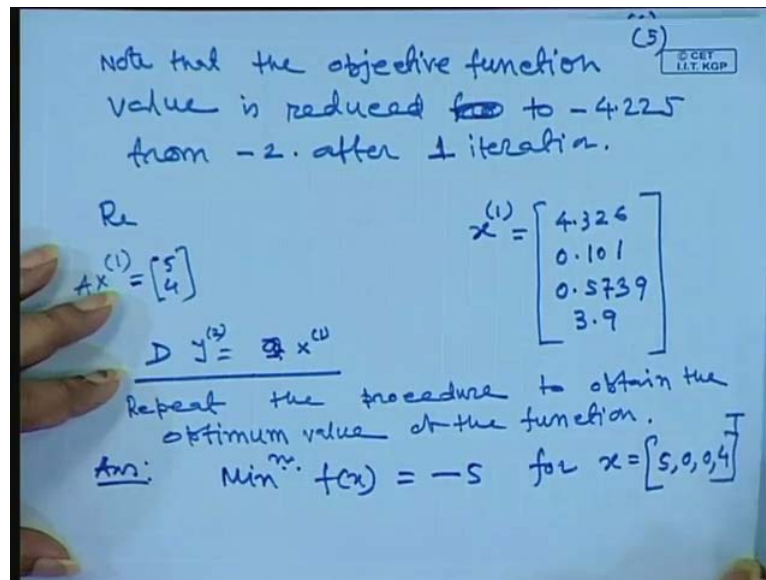 (5)
© CET
I.I.T. KGP
Note that the objective function
value is reduced to -4.225
from -2. after 1 iteration.
Re
x^(1) = [4.326
0.101
0.5739
3.9]
AX^(1) = [5
4]
D y^(2) = x^(1)
Repeat the procedure to obtain the
optimum value of the function.
Ans: Min^m. f(x) = -5 for x = [5, 0, 0, 4]^T